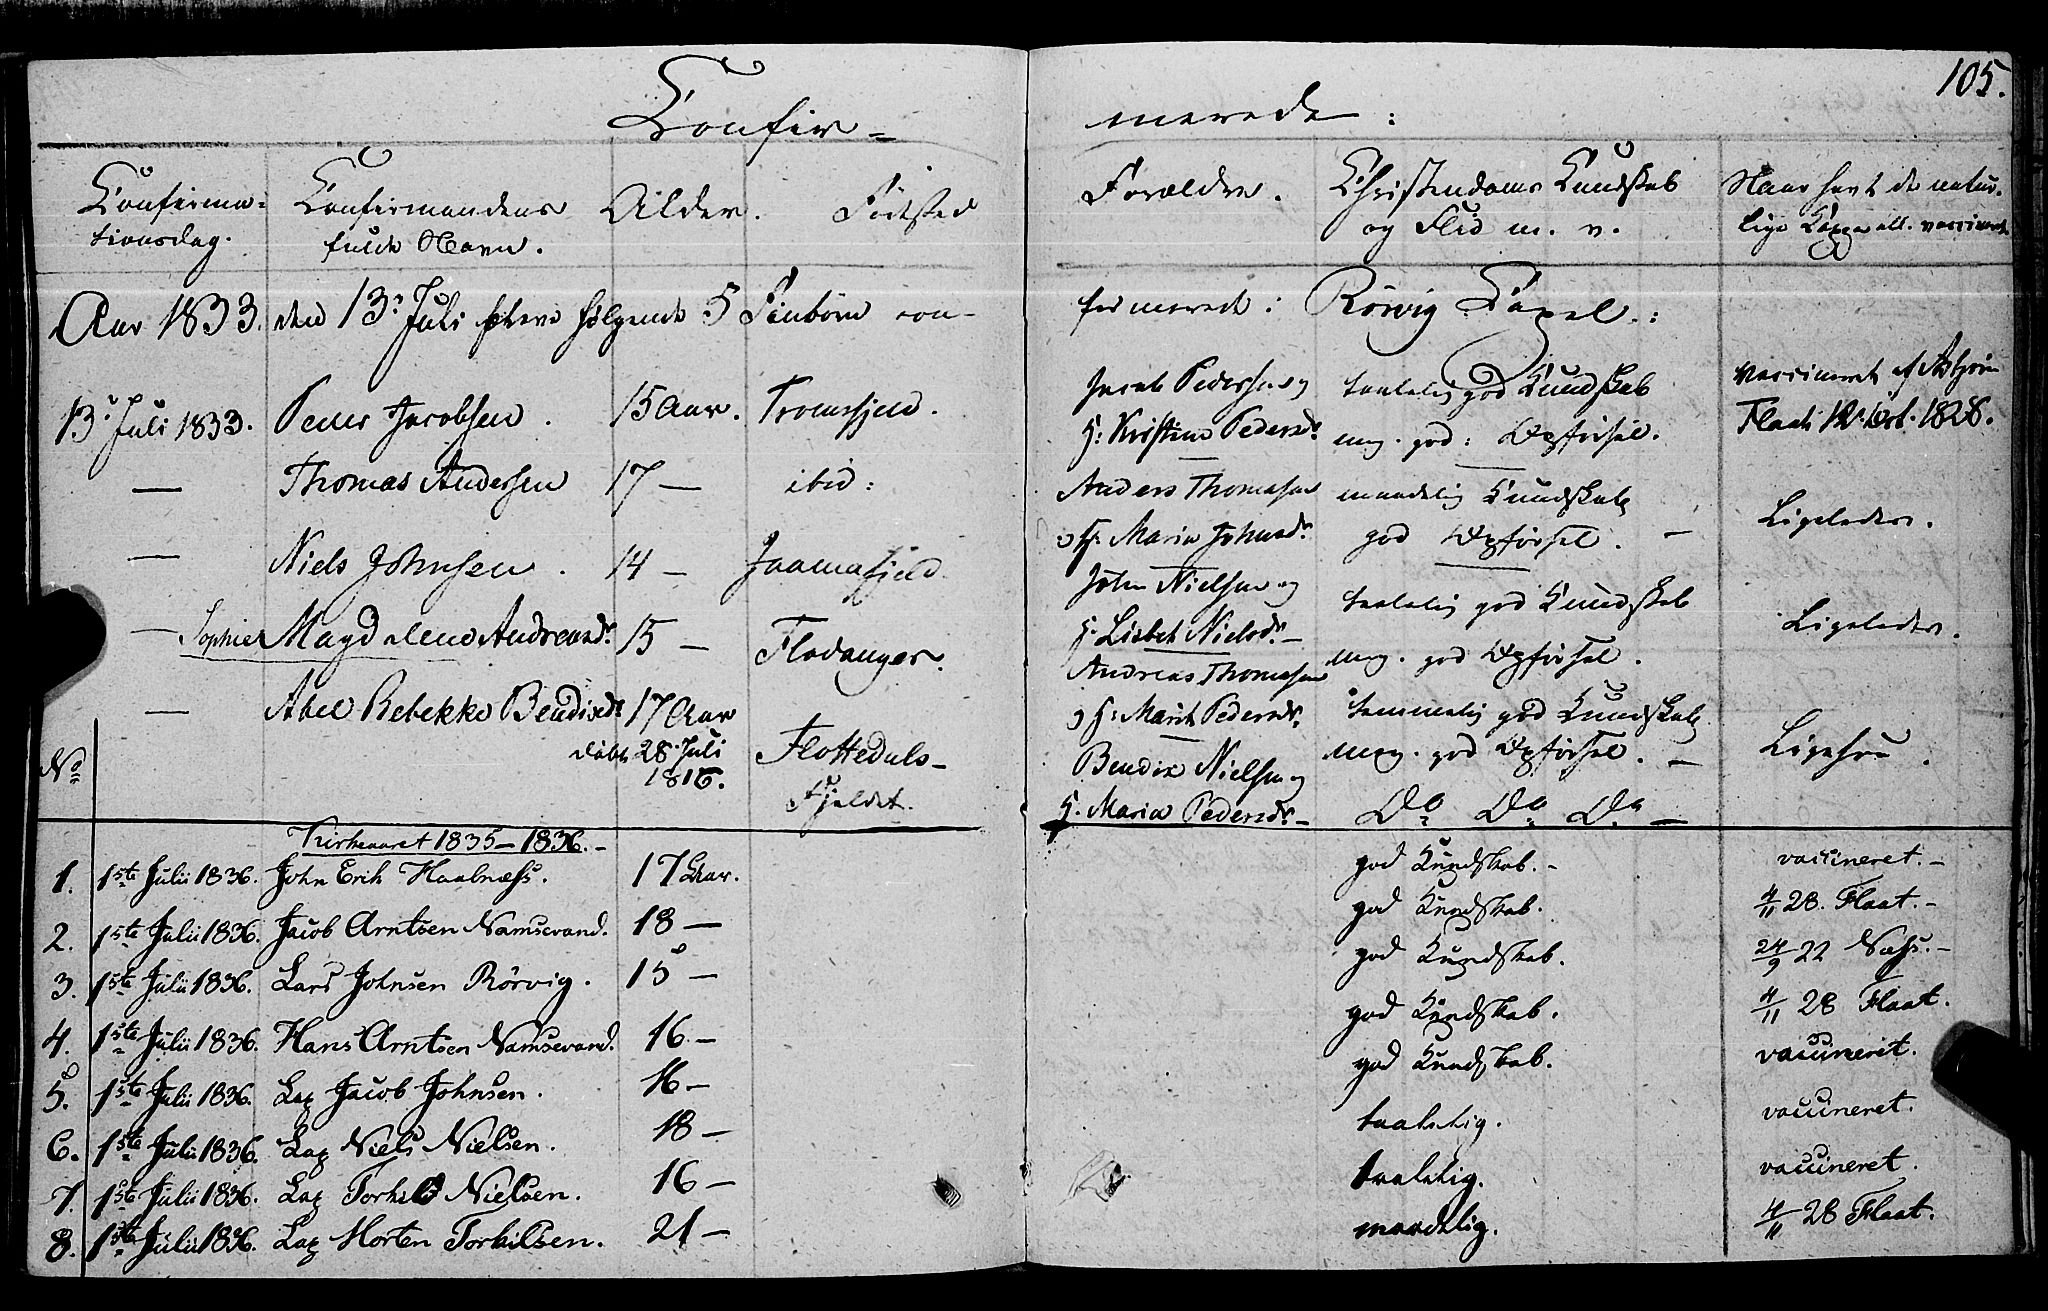 105.
Confir= merede:
Confirma=
tionsdag.
Confirmandens
fulde Navn.
Alder.
Födested
Forældre.
Christendoms Kundskab
og Flid m. v.
Naar havt de natur=
lige Kopper ell. vaccineret
Aar 1833. den 13de Juli bleve følgende 5 Finbörn con-
firmerede: Rörvig Capel.:
13de Juli 1833. Peder Jacobsen. 15 Aar. Tromsfjeld.
Jacob Pedersen og
H: Kristine Pedersdr
taalelig god Kundskab
meg. god: Opförsel.
Vaccineret af Asbjörn
Flaat 12te Oct. 1828.
— Thomas Andersen 17 — ibid:
Anders Thomesen
og H: Maria Johnsdr.
maadelig Kundskab
god Opförsel. —
Ligeledes.
— Niels Johnsen. 14 — Jaamafjeld.
John Nielsen og
H: Lisbet Nielsdr. —
taalelig god Kundskab
meg. god Opförsel.
Ligeledes.
— Sophie Magdalena Andreasdr. 15 — Flodanger.
Andreas Thomesen
og H: Marit Pedersdr.
temmelig god Kundskab
meg. god Opförsel. —
Ligesaa.
— Abel Rebekka Bendixdr. 17 Aar
döbt 28 Juli
1816.
Flottedals-
Fjeldet.
Bendix Nielsen og
H. Maria Pedersdr. —
Do Do Do —
No
Kirkeaaret 1835–1836.–
1. 1ste Julii 1836. John Erik Haalnæss. 17 Aar. god Kundskab.– vaccineret.–
2. 1ste Julii 1836. Jacob Arntsen Namsevand. 18 — god Kundskab. 4/11 28. Flaat.–
3. 1ste Julii 1836. Lars Johnsen Rörvig. 15 — god Kundskab. 24/9 22 Næss.–
4. 1ste Julii 1836. Hans Arntsen Namsevand. 16 — god Kundskab. 4/11 28 Flaat.
5. 1ste Julii 1836. Lap Jacob Johnsen. 16 — god Kundskab. vaccineret.
6. 1ste Julii 1836. Lap Niels Nielsen. 18 — taalelig. vaccineret.
7. 1ste Julii 1836. Lap Torkil Nielsen. 16 — taalelig. vaccineret.
8. 1ste Julii 1836. Lap Morten Torkilsen. 21 — maadelig. 4/11 28 Flaat.